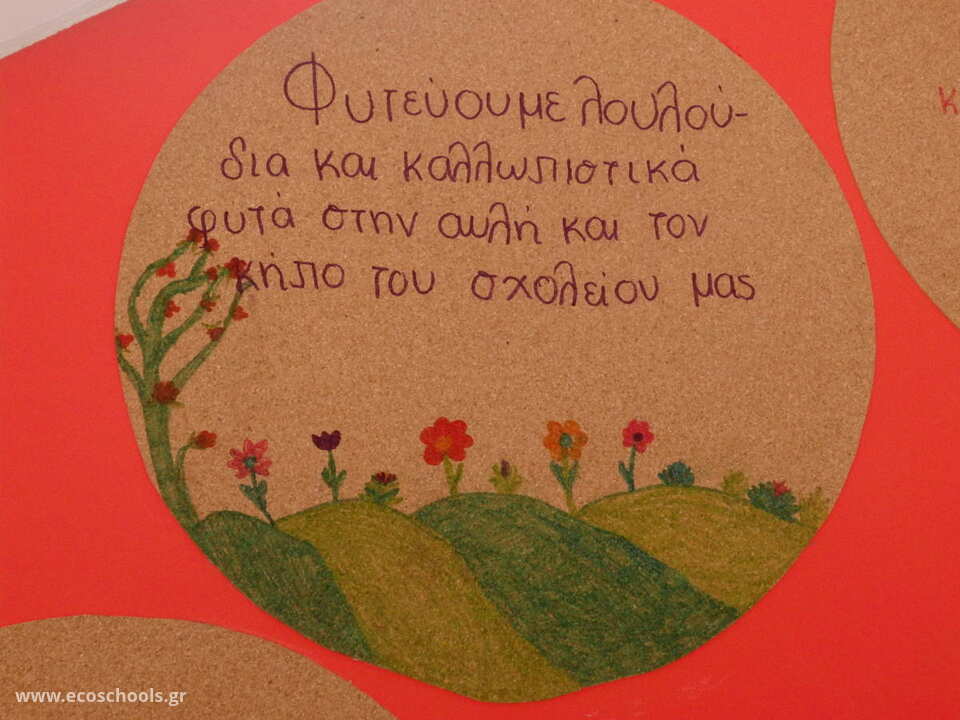 Φυτεύουμε λουλού-
δια και καλλωπιστικά
φυτά στην αυλή και τον
κήπο του σχολείου μας
κ
www.ecoschools.gr